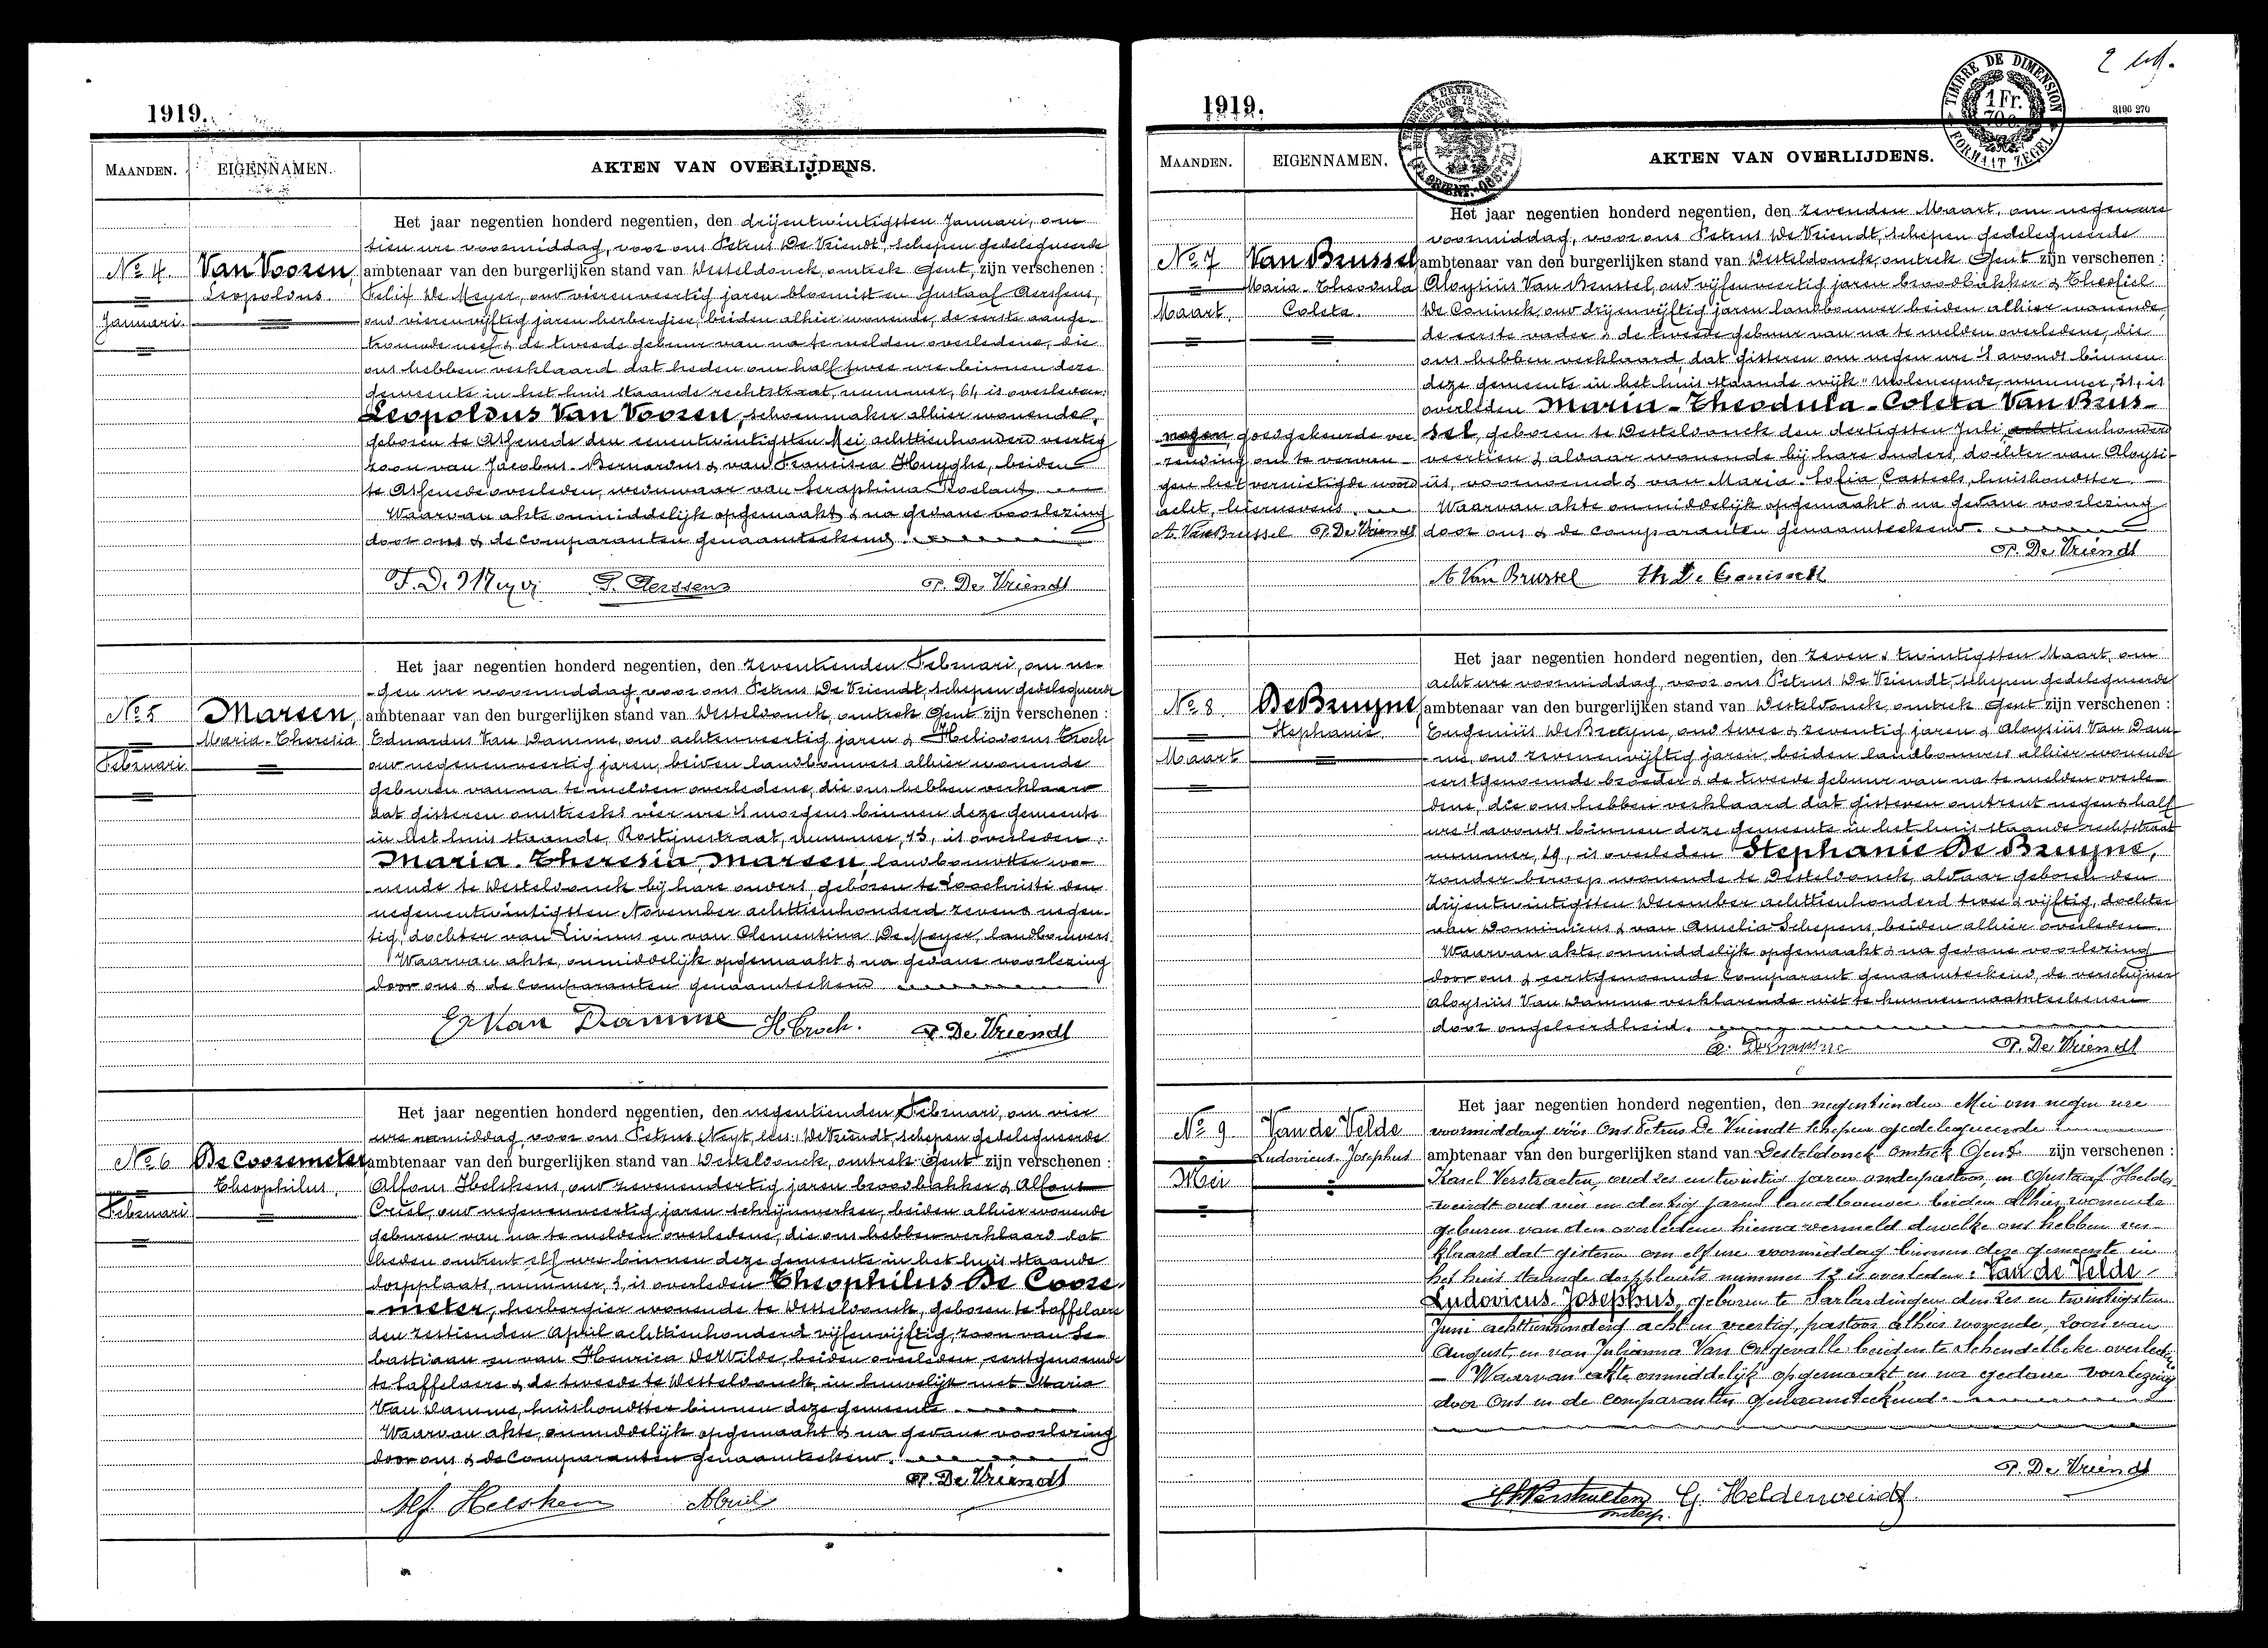 1919.
MAANDEN. EIGENNAMEN. AKTEN VAN OVERLIJDENS.
Het jaar negentien honderd negentien, den drijentwintigsten Januari, om
tien ure voormiddag, voor ons Petrus De Vriendt, schepen gedelegueerde
No 4. Van Vooren, ambtenaar van den burgerlijken stand van Desteldonck, omtrek Gent, zijn verschenen :
Leopoldus. Felix De Meyer, oud vierenveertig jaren bloemist en Gustaaf Aerssens,
Januari. oud vierenvijftig jaren herbergier, beiden alhier wonende, de eerste aange-
trouwde neef & de tweede gebuur van na te melden overledene, die
ons hebben verklaard dat heden om half twee ure binnen deze
gemeente in het huis staande rechtstraat, nummer, 61, is overleden:
Leopoldus Van Vooren, schoenmaker alhier wonende,
geboren te Assenede den eenentwintigsten Mei achttienhonderd veertig
zoon van Jacobus-Bernardus & van Francisca Huyghe, beiden
te Assenede overleden, weduwaar van Seraphina Roelant.
Waarvan akte onmiddelijk opgemaakt & na gedane voorlezing
door ons & de comparanten genaamteekend.
F. De Meyer G. Aerssens P. De Vriendt
Het jaar negentien honderd negentien, den zeventienden Februari, om ne-
gen ure voormiddag, voor ons Petrus De Vriendt, schepen gedelegueerde
No 5 Marsen, ambtenaar van den burgerlijken stand van Desteldonck, omtrek Gent zijn verschenen :
Maria-Theresia Eduardus Van Damme, oud achtenveertig jaren & Heliodorus Croch
Februari. oud negenenveertig jaren, beiden landbouwers alhier wonende
geburen van na te melden overledene, die ons hebben verklaard
dat gisteren omstreeks vier ure 's morgens binnen deze gemeente
in het huis staande, Rostijnestraat, nummer, 13, is overleden:
Maria-Theresia Marsen, landbouwster wo-
nende te Desteldonck bij hare ouders, geboren te Loochristi den
negenentwintigsten November achttienhonderd zeven & negen-
tig, dochter van Livinus en van Clementina De Meyer, landbouwers.
Waarvan akte, onmiddelijk opgemaakt & na gedane voorlezing
door ons & de comparanten genaamteekend
Ed Van Damme H Croch. P. De Vriendt
Het jaar negentien honderd negentien, den negentienden Februari, om vier
ure namiddag, voor ons Petrus De Vriendt, schepen gedelegueerde
No 6 De Coosemeter ambtenaar van den burgerlijken stand van Desteldonck, omtrek Gent zijn verschenen :
Theophilus. Alfons Helskens, oud zevenendertig jaren broodbakker & Alfons
Februari Criel, oud negenenveertig jaren schrijnwerker, beiden alhier wonende
geburen van na te melden overledene, die ons hebben verklaard dat
heden omtrent elf ure binnen deze gemeente in het huis staande
dorpplaats, nummer, 3, is overleden Theophilus De Coose-
meter, herbergier wonende te Desteldonck, geboren te Saffelaere
den zestienden April achttienhonderd vijfenvijftig, zoon van Se-
bastiaan en van Henrica De Wilde, beiden overleden, eerstgenoemde
te Saffelaere & de tweede te Desteldonck, in huwelijk met Maria
Van Damme, huishoudster binnen deze gemeente.
Waarvan akte, onmiddelijk opgemaakt & na gedane voorlezing
door ons & de Comparanten genaamteekend.
P. De Vriendt
Alf Helskens A Criel
2 bl.
1919.
TIMBRE DE DIMENSION
1 Fr.
FORMAAT ZEGEL
3190 270
MAANDEN. EIGENNAMEN. AKTEN VAN OVERLIJDENS.
Het jaar negentien honderd negentien, den zevenden Maart, om negen ure
voormiddag, voor ons Petrus De Vriendt, schepen gedelegueerde
No 7 Van Brussel ambtenaar van den burgerlijken stand van Desteldonck, omtrek Gent zijn verschenen :
Maria-Theodula Aloysiüs Van Brussel, oud vijfenveertig jaren broodbakker & Theofiel
Maart. Coleta. De Coninck oud drijenvijftig jaren landbouwer beiden alhier wonende,
de eerste vader & de tweede gebuur van na te melden overledene, die
ons hebben verklaard, dat gisteren om negen ure 's avonds binnen
deze gemeente in het huis staande wijk "Moleneynde, nummer, 31, is
overleden Maria-Theodula-Coleta Van Brus-
negen, goedgekeurde ver sel, geboren te Desteldonck den dertigsten Juli achttienhonderd
zending om te vervan- veertien & aldaar wonende bij hare ouders, dochter van Aloysi-
gen het vernietigde woord üs, voornoemd & van Maria-Sofia Casteels, huishoudster.
acht, hiernevens. Waarvan akte onmiddelijk opgemaakt & na gedane voorlezing
A. Van Brussel P. De Vriendt door ons & de comparanten genaamteekend.
P. De Vriendt
A Van Brussel Th De Coninck
Het jaar negentien honderd negentien, den zeven & twintigsten Maart, om
acht ure voormiddag, voor ons Petrus De Vriendt, schepen gedelegueerde
No 8. De Bruyne ambtenaar van den burgerlijken stand van Desteldonck, omtrek Gent zijn verschenen :
Stephanie. Eugeniüs De Bruyne, oud twee & zeventig jaren & Aloysiüs Van Dam-
Maart me, oud zevenenvijftig jaren, beiden landbouwers alhier wonende
eerstgenoemde broeder & de tweede gebuur van na te melden overle-
dene, die ons hebben verklaard dat gisteren omtrent negen & half
ure 's avonds binnen deze gemeente in het huis staande rechtstraat
nummer, 19, is overleden Stephanie De Bruyne,
zonder beroep wonende te Desteldonck, aldaar geboren den
drijentwintigsten December achttienhonderd twee & vijftig, dochter
van Dominicus & van Amelia Schepens, beiden alhier overleden.
Waarvan akte, onmiddelijk opgemaakt & na gedane voorlezing
door ons & eerstgenoemde Comparant genaamteekend, de verschijner
Aloysiüs Van Damme verklarende niet te kunnen naamteekenen
door ongeleerdheid.
E. De Bruyne P. De Vriendt
Het jaar negentien honderd negentien, den negentienden Mei om negen ure
No 9 Van de Velde voormiddag vóór Ons Petrus De Vriendt schepen gedelegueerde
Ludovicus. Josephus ambtenaar van den burgerlijken stand van Desteldonck omtrek Gent zijn verschenen :
Mei Karel Verstraeten, oud zes en twintig jaren onderpastoor, en Gustaaf Helder-
weirdt oud vier en dertig jaren landbouwer beiden alhier wonende
geburen van den overledene hierna vermeld dewelke ons hebben ver-
klaard dat gisteren om elf ure voormiddag binnen deze gemeente in
het huis staande dorpplaats nummer 12 is overleden: Van de Velde
Ludovicus-Josephus, geboren te Sarlardingen den zes en twintigsten
Juni achttienhonderd acht en veertig, pastoor alhier wonende, zoon van
August, en van Julianna Van Ongevalle beiden te Schendelbeke overleden
Waarvan akte onmiddelijk opgemaakt en na gedane voorlezing
door Ons en de comparanten genaamteekend.
P. De Vriendt
K Verstraeten G. Helderweirdt
onderp.